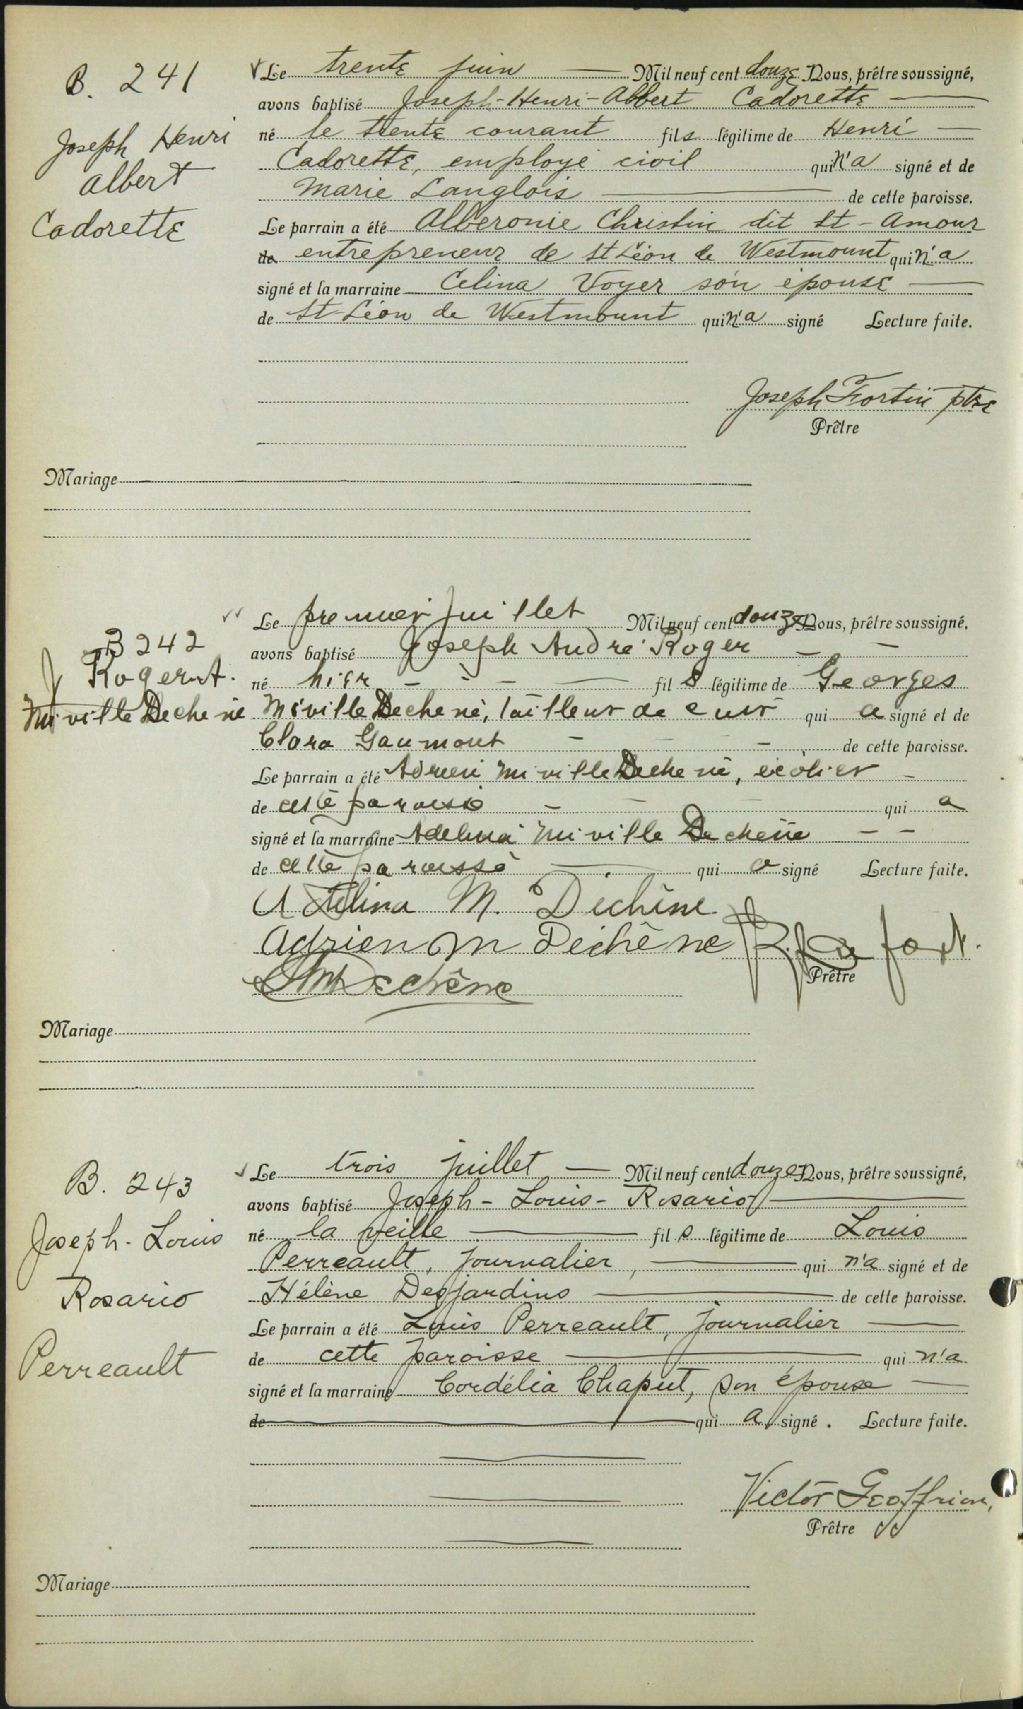 B. 241
Joseph Henri
Albert
Cadorette
Le trente juin Mil neuf cent douze Nous, prêtre soussigné,
avons baptisé Joseph-Henri-Albert Cadorette
né le trente courant fils légitime de Henri
Cadorette, employé civil qui n'a signé et de
Marie Langlois de cette paroisse.
Le parrain a été Alberonie Christin dit St-Amour
de entrepreneur de St Léon de Westmount qui n'a
signé et la marraine Celina Voyer son épouse
de St Léon de Westmount qui n'a signé Lecture faite.
Joseph Fortin ptre
Prêtre
Mariage
B 242
J Roger A.
Miville Dechene
Le premier juillet Mil neuf cent douze Nous, prêtre soussigné,
avons baptisé Joseph André Roger
né hier fils légitime de Georges
Miville Dechene, tailleur de cuir qui a signé et de
Clara Gaumont de cette paroisse.
Le parrain a été Adrien Miville Dechene, écolier
de cette paroisse qui a
signé et la marraine Adelina Miville Dechene
de cette paroisse qui a signé Lecture faite.
Adelina M. Dechêne
Adrien M Dechêne
Dechêne
Prêtre
Mariage
B. 243
Joseph-Louis
Rosario
Perreault
Le trois juillet Mil neuf cent douze Nous, prêtre soussigné,
avons baptisé Joseph-Louis-Rosario
né la veille fils légitime de Louis
Perreault, journalier, qui n'a signé et de
Hélène Desjardins de cette paroisse.
Le parrain a été Louis Perreault, journalier
de cette paroisse qui n'a
signé et la marraine Cordélia Chaput, son épouse
de qui a signé. Lecture faite.
Victor Geoffrion,
Prêtre
Mariage